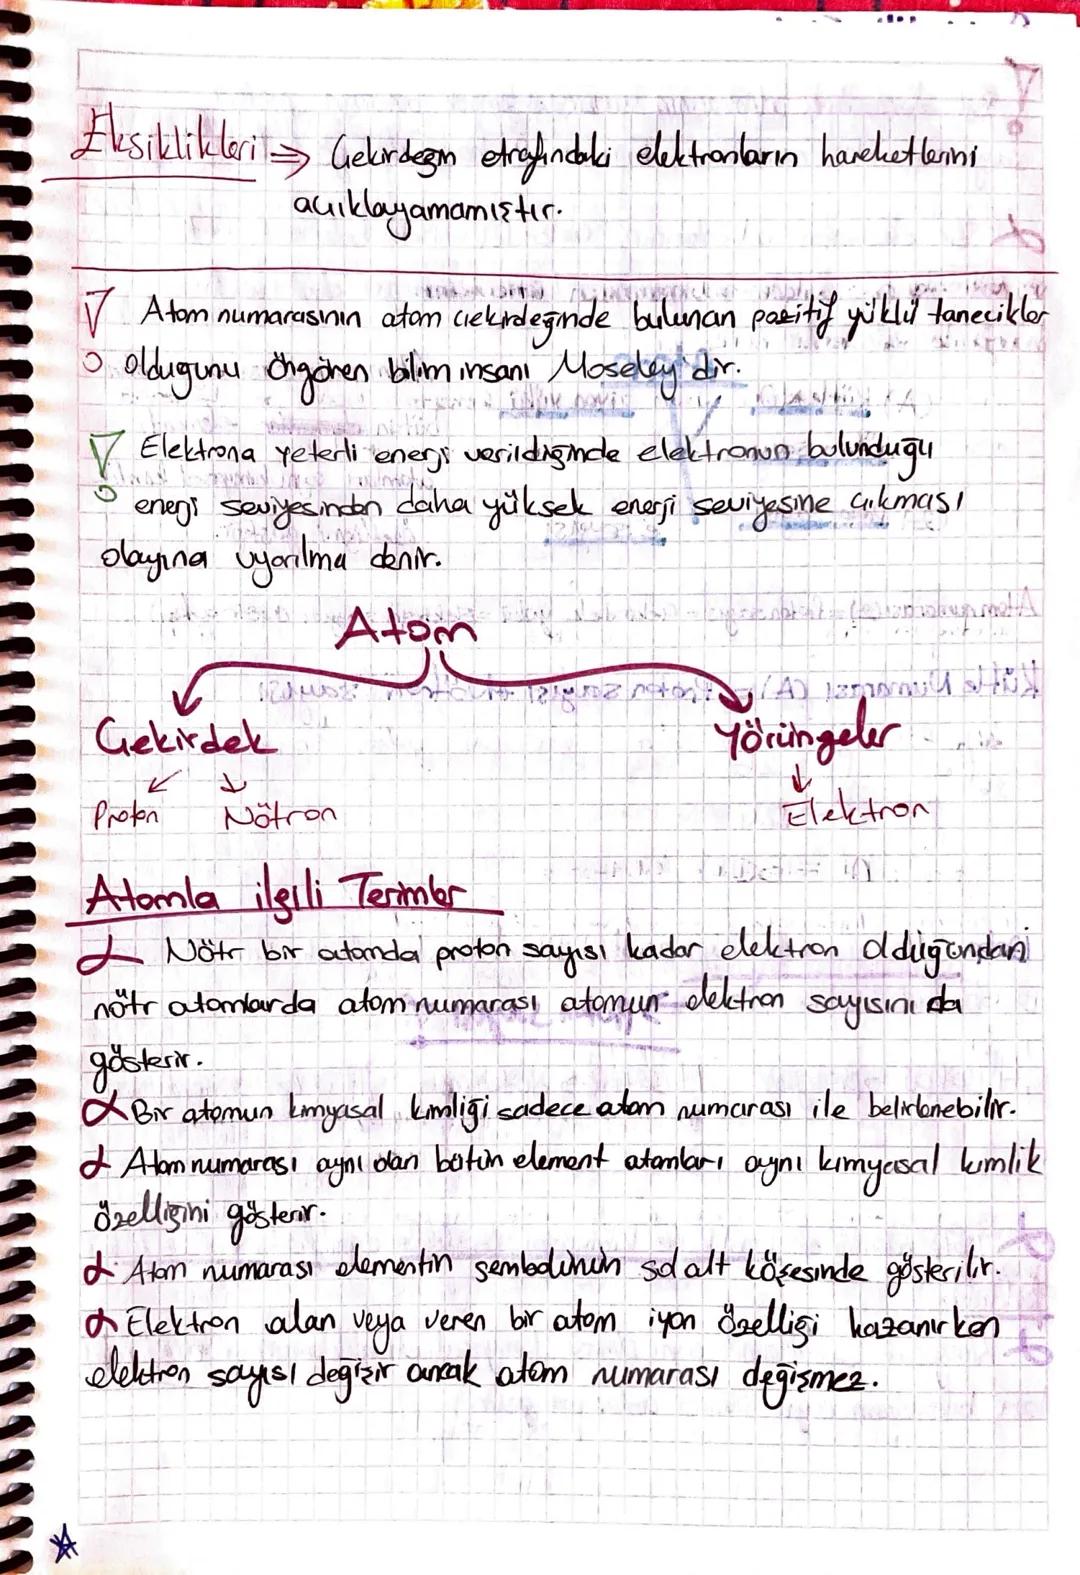 Eksiklikleri ⇒ Çekirdeğin etrafındaki elektronların hareketlerini
açıklayamamıştır.
Atom numarasının atom çekirdeğinde bulunan pozitif yüklü tanecikler
olduğunu öngören bilim insanı Moseley'dir.
Elektrona yeterli enerji verildiğinde elektronun bulunduğu
enerji seviyesinden daha yüksek enerji seviyesine çıkması
olayına uyarılma denir.
Atom
Çekirdek Yörüngeler
Proton Nötron Elektron
Atomla ilgili Terimler
α Nötr bir atomda proton sayısı kadar elektron olduğundan
nötr atomlarda atom numarası atomun elektron sayısını da
gösterir.
α Bir atomun kimyasal kimliği sadece atom numarası ile belirlenebilir.
α Atom numarası aynı olan bütün element atomları aynı kimyasal kimlik
özelliğini gösterir.
α Atom numarası elementin sembolünün sol alt köşesinde gösterilir.
α Elektron alan veya veren bir atom iyon özelliği kazanırken
elektron sayısı değişir ancak atom numarası değişmez.